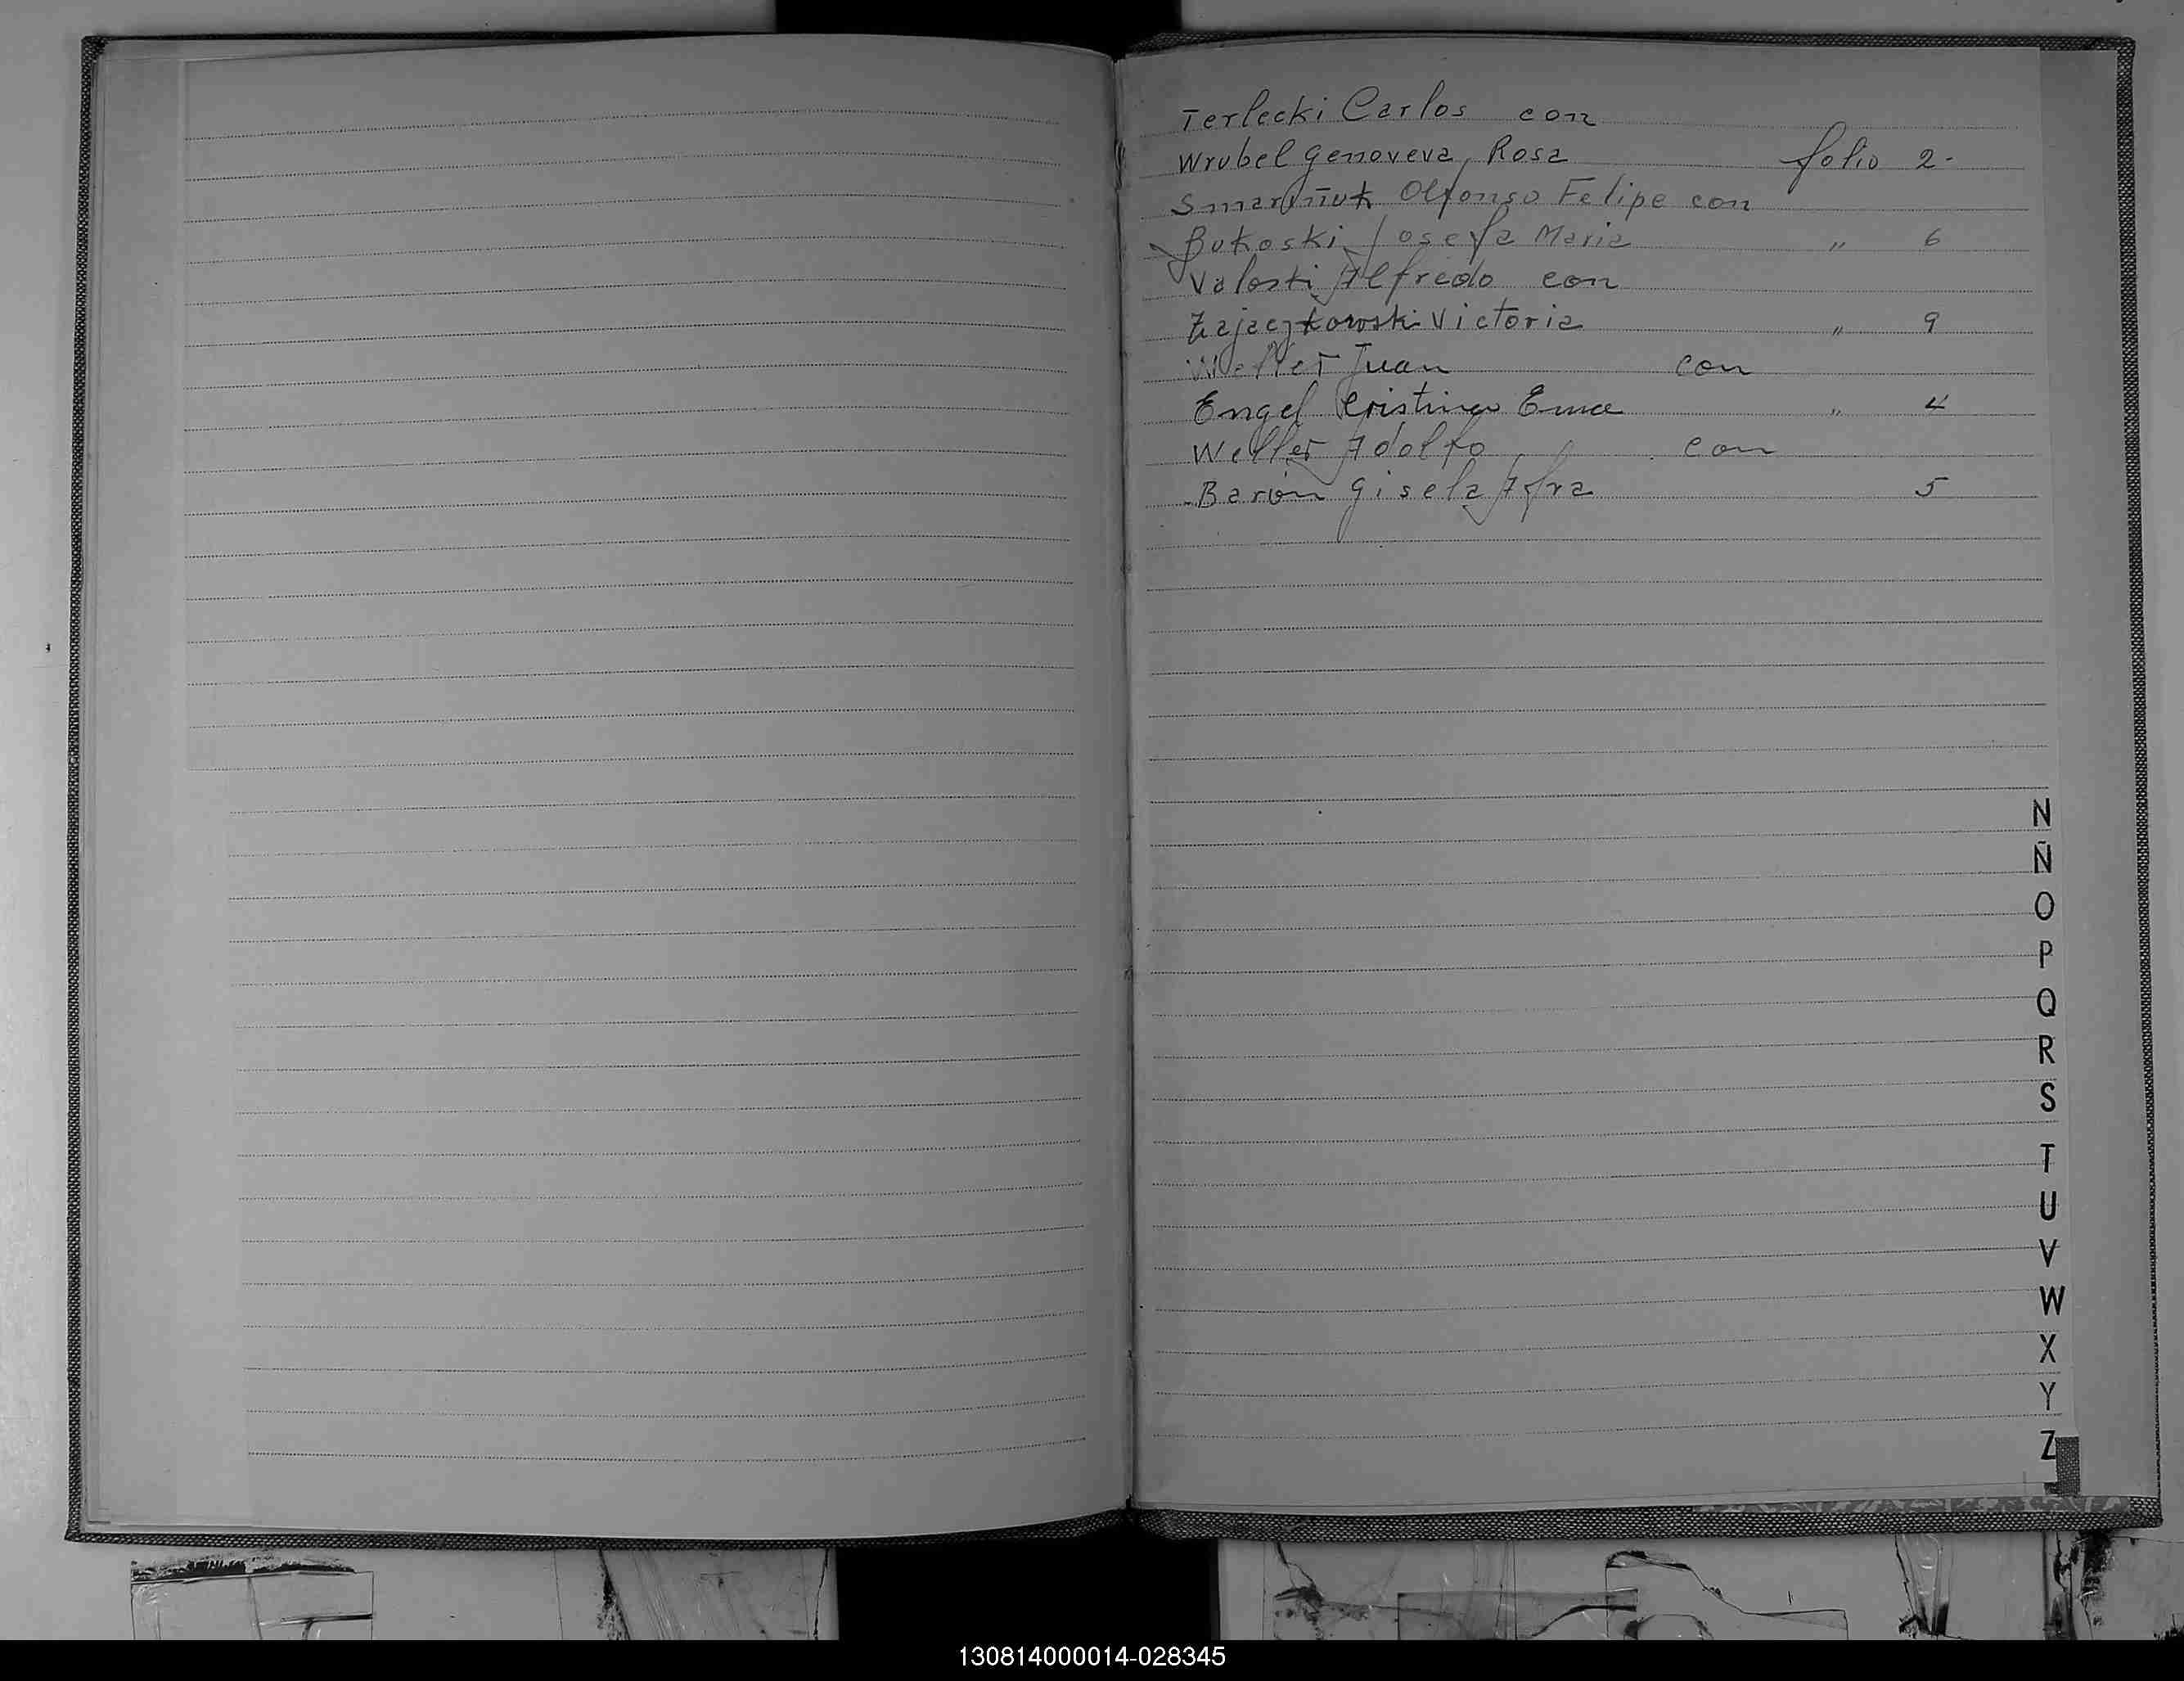 Terlecki Carlos con
Wrubel Genoveva Rosa folio 2-
Olfonso Felipe con
Bukoski Josefa Maria " 6
Alfredo con
Zajaczkowski Victoria " 9
Weller Juan con
Engel Cristina Erna " 4
Weller Adolfo con
Baron Gisela Afra 5
N
Ñ
O
P
Q
R
S
T
U
V
W
X
Y
Z
130814000014-028345